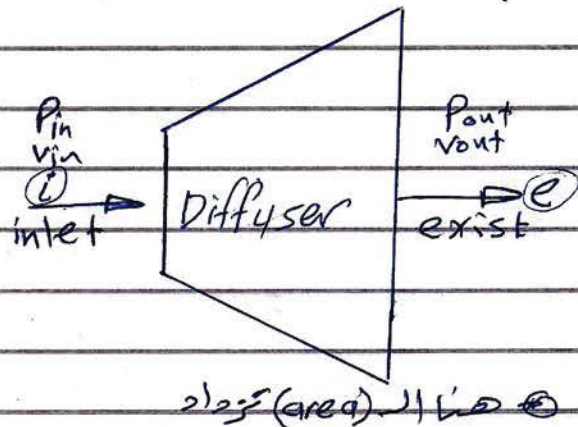 Pin
Vin
i
inlet
Diffuser
Pout
Vout
e
exist
هنا الـ (area) تزداد